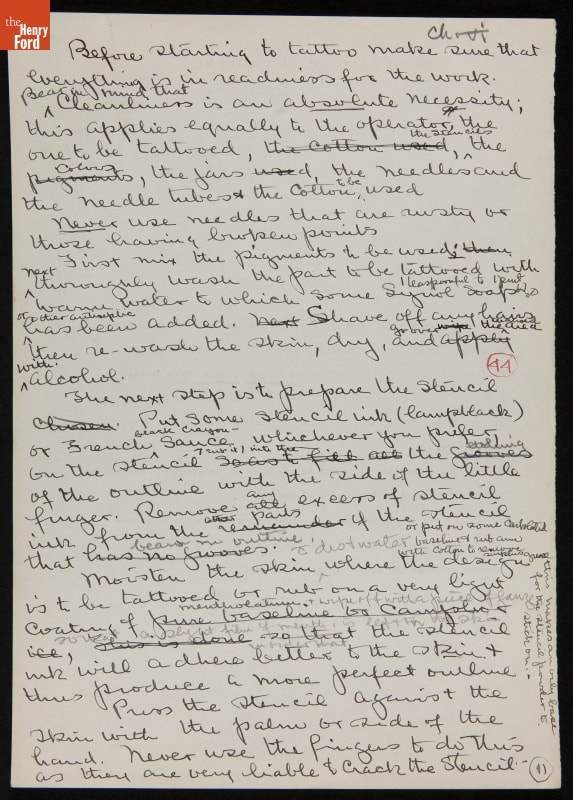 the
Henry
Ford
ch-vi
Before starting to tattoo make sure that
everything is in readiness for the work.
Bear in mind that
Cleanliness is an absolute necessity;
this applies equally to the operator, the
the stencils
one to be tattooed, the cotton used, the
colors
pigments, the jars used, the needles and
the needle tubes & the cotton to be used
Never use needles that are rusty or
those having broken points
First mix the pigments to be used; then
next
thoroughly wash the part to be tattooed with
1 teaspoonful to 1 pint
warm water to which some Synol Soap
or other antiseptic
has been added. Next Shave off any hairs
go over the area
then re-wash the skin, dry, and apply
with
alcohol.
44
The next step is to prepare the stencil
chosen. Put some stencil ink (lampblack)
or French Sauce whichever you prefer
on the stencil so as to fill all the grooves
of the outline with the side of the little
any
finger. Remove all excess of stencil
parts
ink from the remainder of the stencil
or put on some carbolated
that has no grooves.
baseline & rub arm
with cotton to remove
Moisten the skin where the design
is to be tattooed or rub on a very light
coating of pure baseline or Camphor
ice, this is done so that the stencil
ink will adhere better to the skin &
thus produce a more perfect outline
this makes an oily base
for the stencil powder to
stick on.-
Press the stencil against the
skin with the palm or side of the
hand. Never use the fingers to do this
as they are very liable to crack the stencil.-